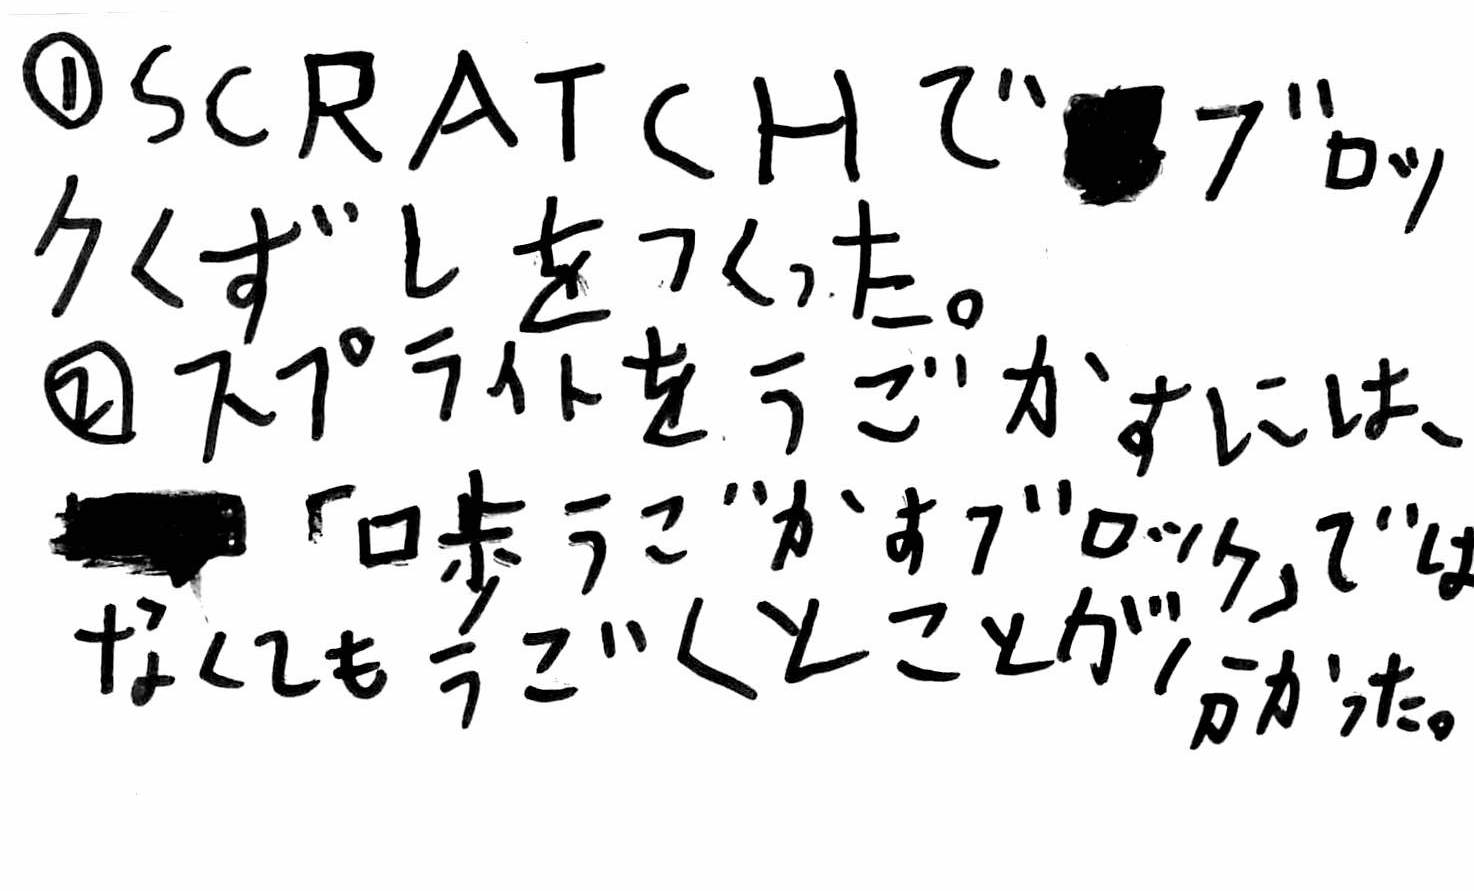 ①SCRATCHでブロッ
クくずしをつくった。
②スプライトをうごかすには、
「口歩うごかすブロック」では
なくてもうごくとことが分かった。